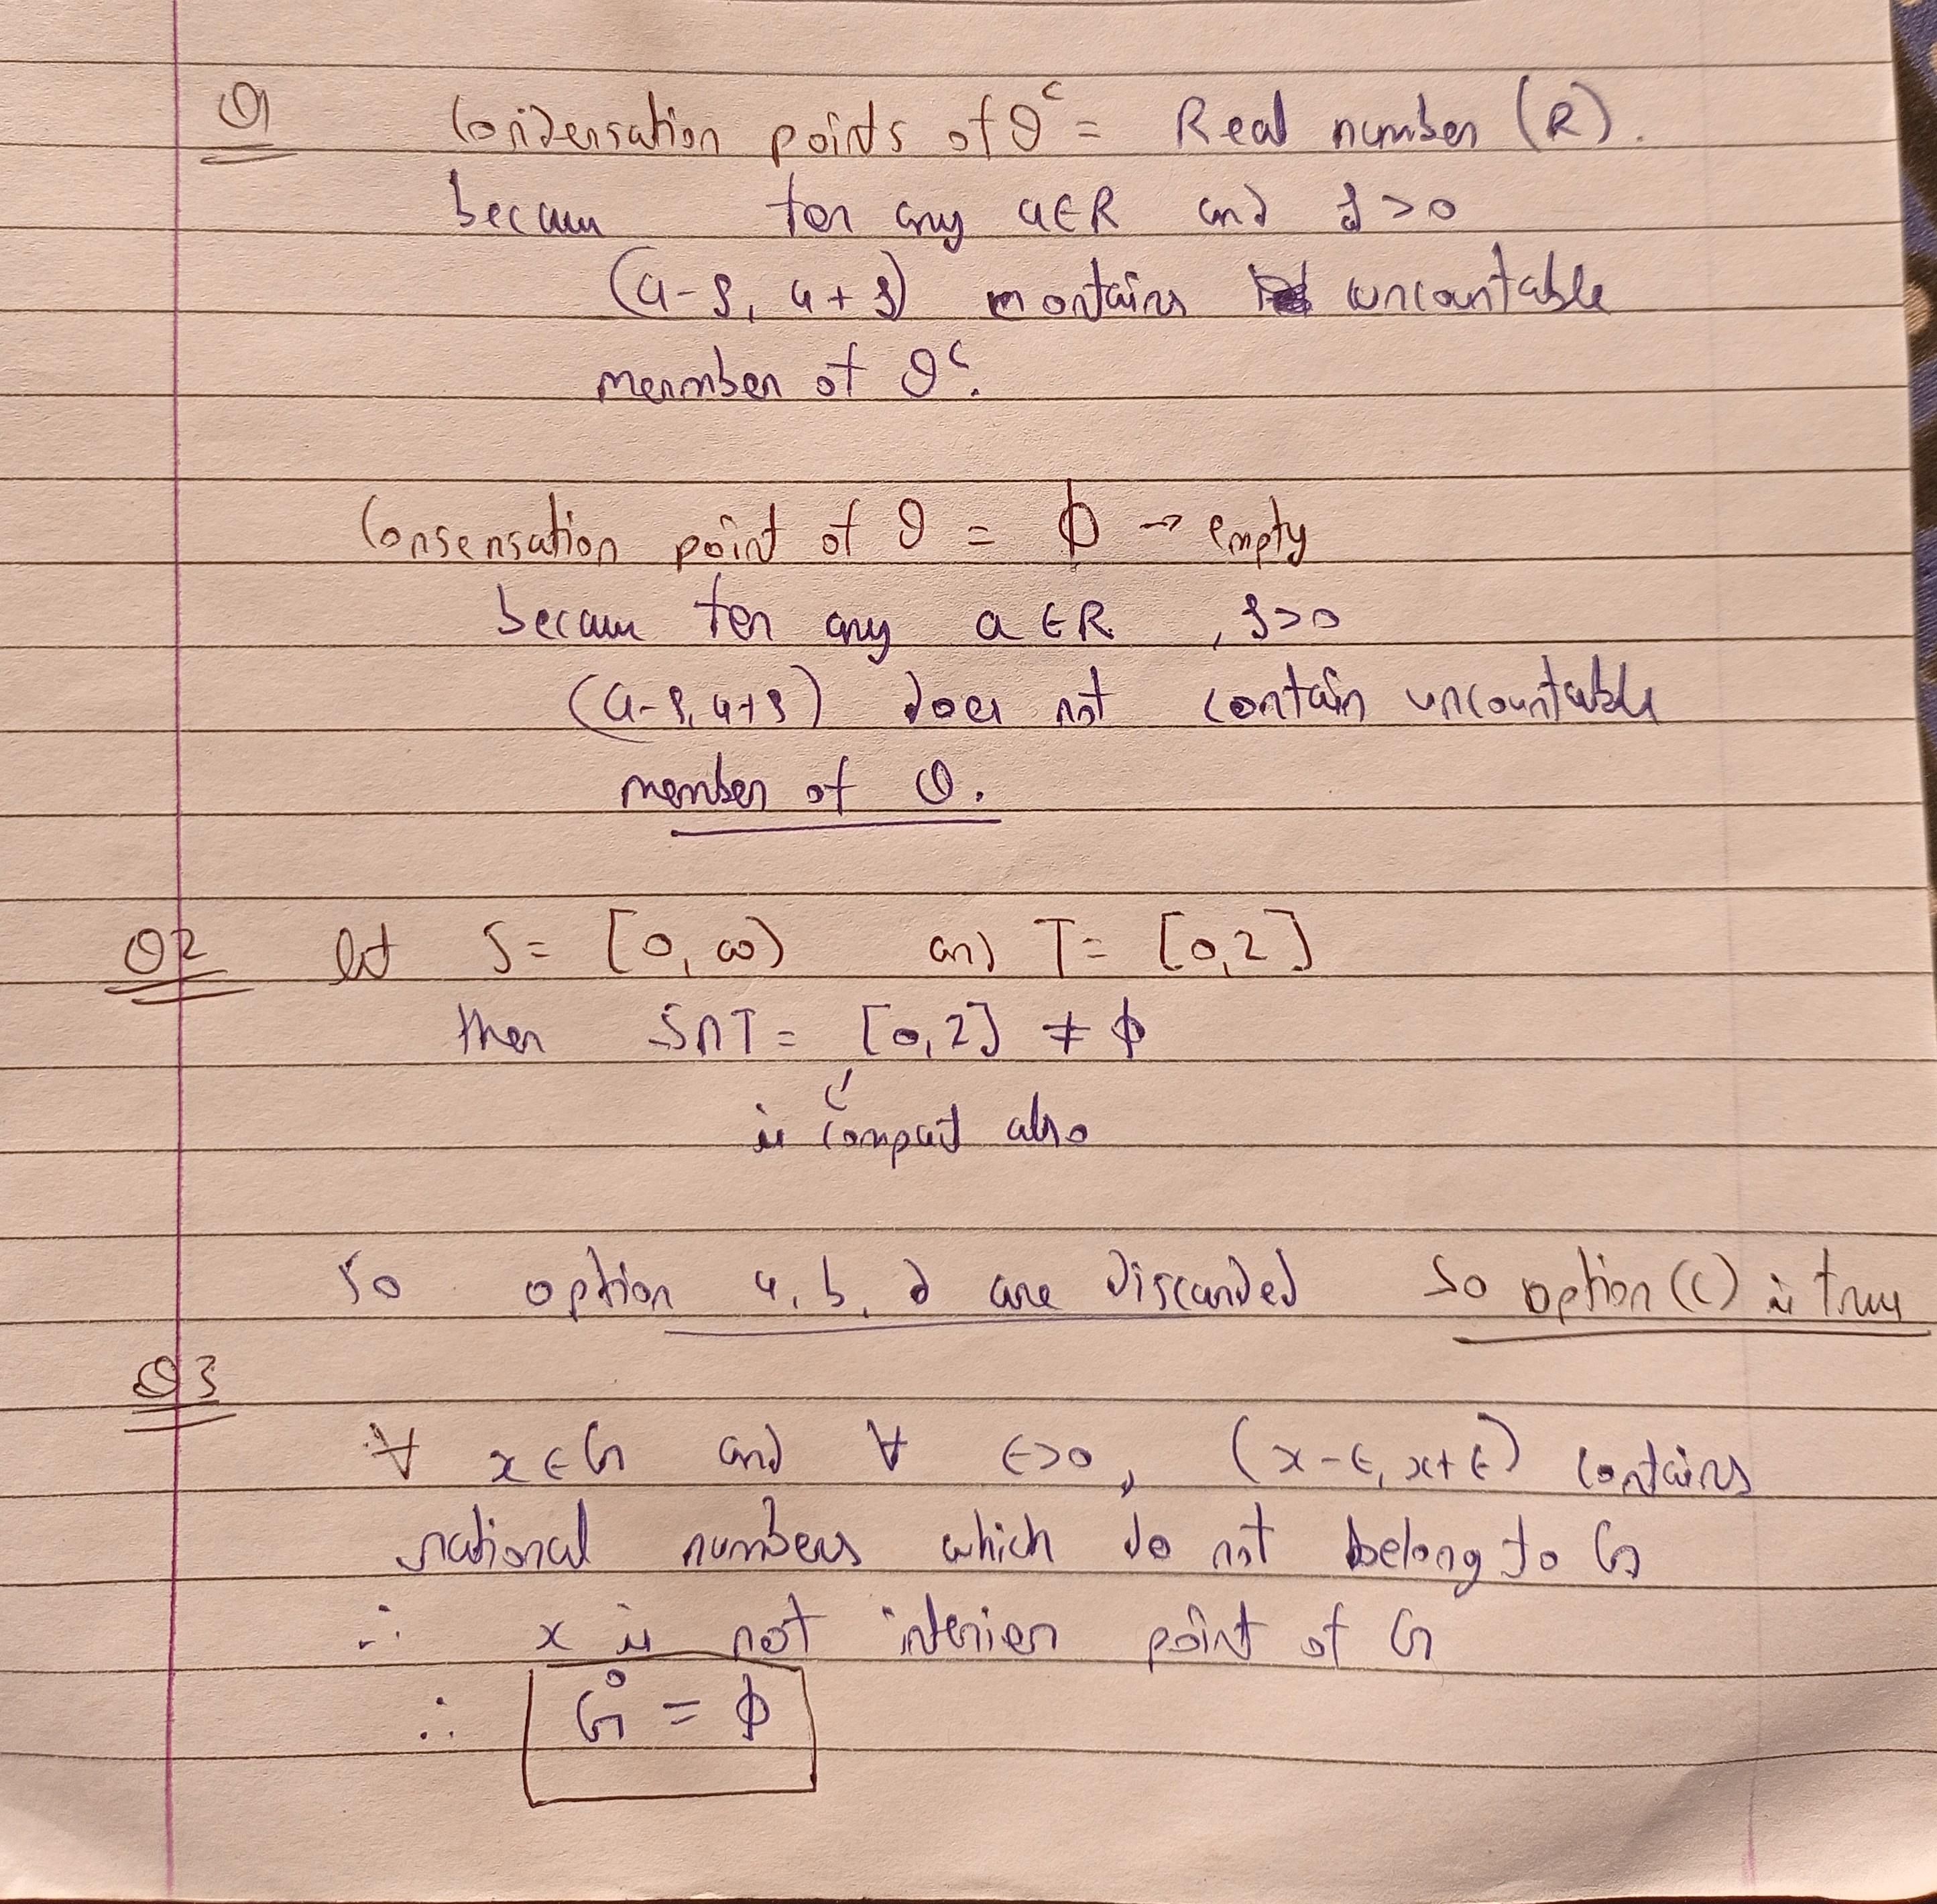 Q1 Condensation points of Q^c = Real number (R).
becaus for any a∈R and δ>0
(a-δ, a+δ) contains uncountable
member of Q^c.
Consensation point of Q = ϕ → empty
becaus for any a∈R, δ>0
(a-δ, a+δ) does not contain uncountable
member of Q.
Q2 let S= [0, ∞) and T= [0,2]
then S∩T= [0,2] ≠ ϕ
is compact also
So option a, b, d are discarded So option (c) is true
Q3
∀ x∈G and ∀ ϵ>0, (x-ϵ, x+ϵ) contains
rational numbers which do not belong to G
∴ x is not interior point of G
∴ G° = ϕ